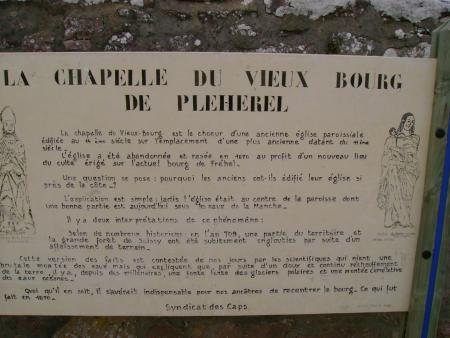 LA CHAPELLE DU VIEUX BOURG
DE PLEHEREL
La chapelle du Vieux-Bourg est le choeur d'une ancienne église paroissiale
édifiée au siècle sur l'emplacement d'une plus ancienne datant du
siècle.
L'église a été abandonnée et rasée en 1870 au profit d'un nouveau lieu
du culte érigé sur l'actuel bourg de Fréhel.
Une question se pose : pourquoi les anciens ont-ils édifié leur église si
près de la côte ?
L'explication est simple ; jadis l'église était au centre de la paroisse dont
une bonne partie est aujourd'hui sous les eaux de la Manche.
Il y a deux interprétations de ce phénomène :
Selon de nombreux historiens en l'an 709, une partie du territoire et
la grande forêt de Scissy ont été subitement engloutis par suite d'un
affaissement de terrain.
Cette version des faits est contestée de nos jours par les scientifiques qui nient une
brutale montée des eaux mais qui expliquent que, par suite d'un doux et continu réchauffement
de la terre, il y a, depuis des millénaires, une fonte lente des glaciers polaires et une montée
des eaux océanes.
Quoi qu'il en soit, il s'avérait indispensable pour nos ancêtres de recentrer le bourg. Ce qui fut
fait en 1870.
Syndicat des Caps